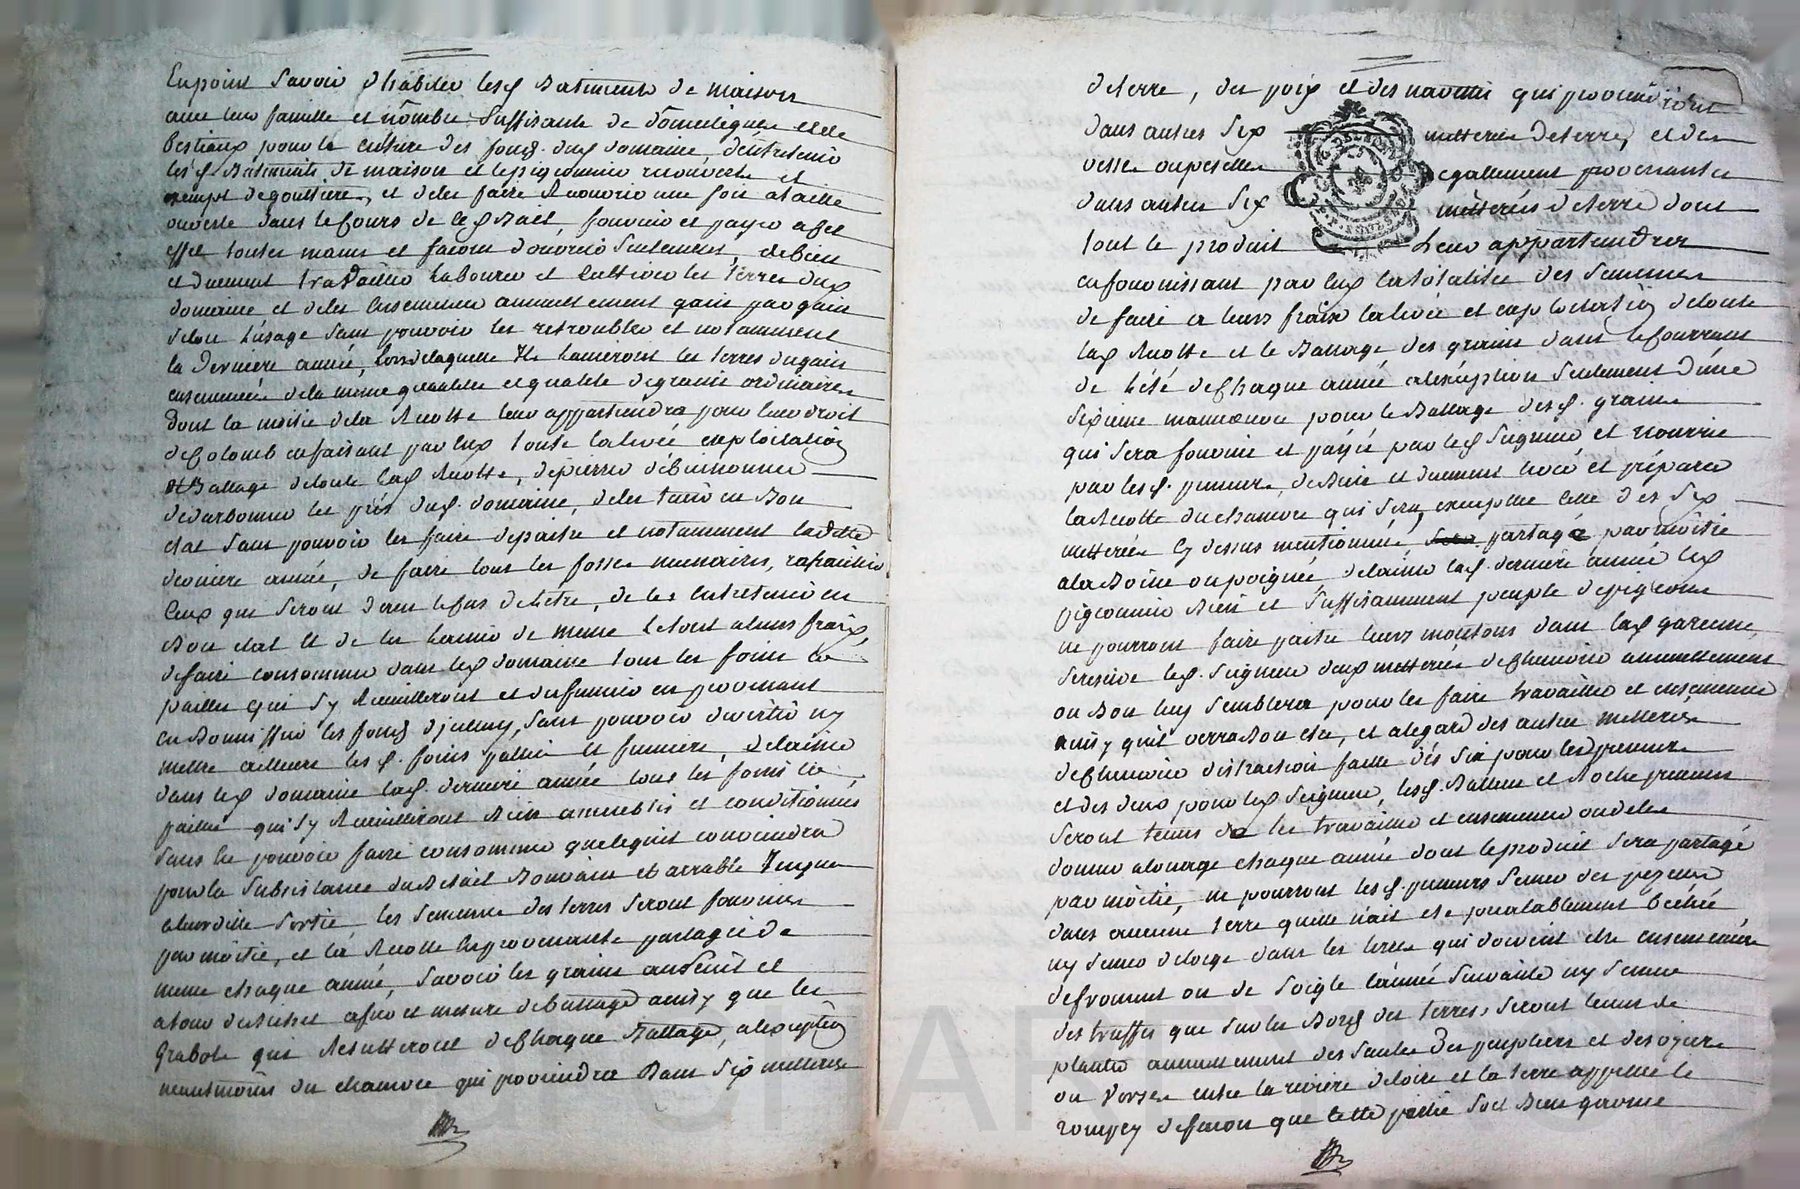 En point savoir d'habiter lesd. Batiments de maison
avec leur famille et nombre suffisants de domestiques et de
Bestiaux pour la culture des fonds dud. domaine, d'entretenir
lesd. Batiments de maison et le pigeonnier recouverts et
exempt de gouttieres, et de les faire recouvrir une fois a taille
ouverte dans le cours de ced. Bail, fournir et payer a cet
effet toutes mains et facons d'ouvriers seulement, de bien
et duement travailler labourer et cultiver les terres dud.
domaine et de les ensemencer annuellement gain par gain
selon l'usage sans pouvoir les retroubler et notamment
la derniere année, lors de laquelle ils laisseront les terres du gain
ensemencées de la meme quantité et qualité de grains ordinaires
dont la moitié de la recolte leur appartiendra pour leur droit
de colomb en faisant par eux toute la levée exploitation
et Battage de toute lad. recolte, d'epierrer débuissonner
dedarbonner les prés dud. domaine, de les tenir en Bon
etat sans pouvoir les faire depaitre et notamment ladite
derniere année, de faire tous les fosses necessaires, rafraichir
ceux qui seront dans le cas de l'etre, de les entretenir en
Bon etat et de les laisser de meme le tout a leurs fraix,
de faire consommer dans led. domaine tous les foins et
pailles qui s'y recueilleront et du fumier en provenant
en Bonniffier les fonds d'jceluy, sans pouvoir divertir ny
mettre ailleurs lesd. foins pailles et fumiers, de laisser
dans led. domaine lad. derniere année tous les foins et
pailles qui s'y recueilleront Bien ameublis et conditionnés
sans en pouvoir faire consommer que ce qui conviendra
pour la subsistance du Betail Bouvain et arrable jusques
a leur dite sortie, les semences des terres seront fournies
par moitié, et la recolte en provenante partagée de
meme chaque année, savoir les grains au Benit et
a tour de Bichet a fur et mesure de battage ainsy que les
Grabots qui resulteront de chaque Battage, a l'exeption
neantmoins du chanvre qui proviendra dans six metterées
de terre, des poix et des naveaux qui proviendront
dans autres six metterées de terre, et des
vesses ou peselles egallement provenantes
dans autres six metterées de terre dont
tout le produit leur appartiendra
en fournissant par eux la totalité des semences
de faire a leurs fraix la levée et exploitation de toute
lad. recolte et le Battage des grains dans le courrant
de l'été de chaque année a l'exeption seulement d'une
sixieme manoeuvre pour le Battage desd. grains
qui sera fournie et payée par led. seigneur et nourrie
par lesd. preneurs, de Bien et duement levé et préparer
la recolte du chanvre qui sera, excepté celle des six
metterées cy dessus mentionnées, partagé par moitié
a la Boite ou poignée, de laisser lad. derniere année led.
pigeonnier Bien et suffisamment peuplé de pigeons
ne pourront faire paitre leurs moutons dans lad. garenne,
se reserve led. seigneur deux metterées de cheneviere annuellement
ou Bon luy semblera pour les faire travailler et ensemencer
ainsy qu'il verra Bon etre, et a l'egard des autres metterées
de cheneviere distraction faite dés six pour les preneurs
et des deux pour led. seigneur, lesd. Balleur et Roche preneurs
seront tenus de les travailler et ensemencer ou de les
donner a louage chaque année dont le produit sera partagé
par moitié, ne pourront lesd. preneurs semer des pezeaux
dans aucune terre quelle n'ait eté préalablement béchée,
ny semer de l'orge dans les terres qui doivent etre ensemencées
de froment ou de soigle l'année suivante ny semer
des truffes que sur les Bords des terres, seront tenus de
planter annuellement des saules des peupliers et des oziers
ou vorses entre la riviere de loire et la terre appellée le
rompey de facon que cette partie soit Bien garnie